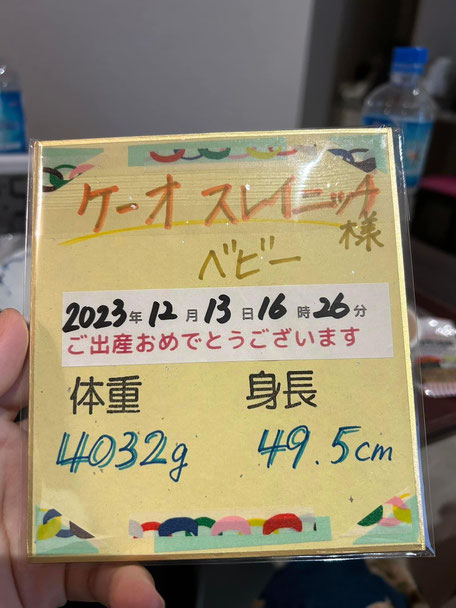 ケーオ スレイニッチ
様
ベビー
2023年12月13日16時26分
ご出産おめでとうございます
体重 身長
4032g 49.5cm